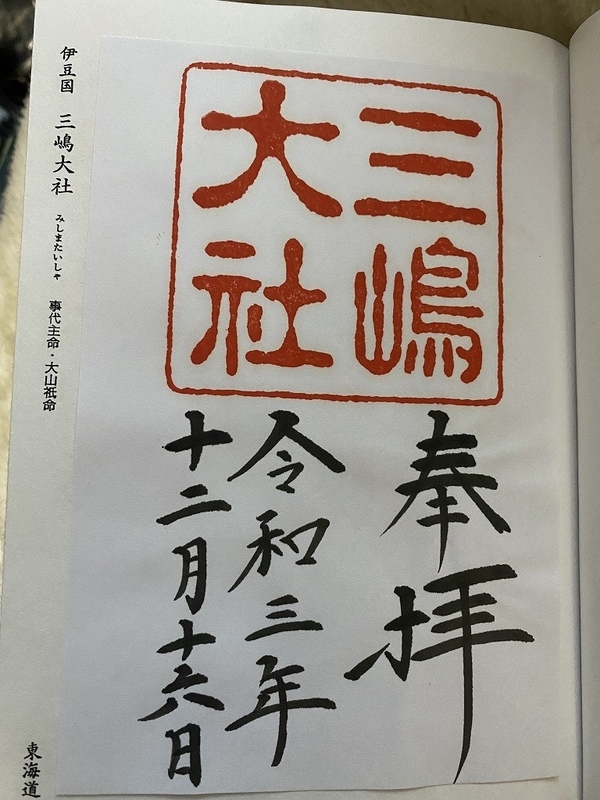 三嶋
大社
奉拝
令和三年
十二月十六日
伊豆国 三嶋大社 みしまたいしゃ 事代主命・大山祇命
東海道